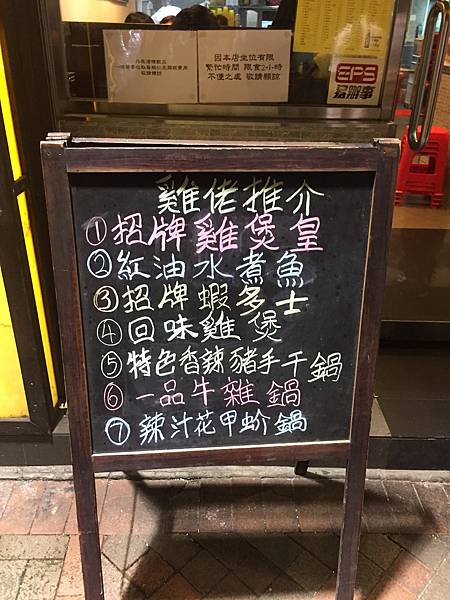 因本店坐位有限
繁忙時間 限食2小時
不便之處 敬請願諒
敬請原諒
EPS
易辦事
雞佬推介
①招牌雞煲皇
②紅油水煮魚
③招牌蝦多士
④回味雞煲
⑤特色香辣豬手干鍋
⑥一品牛雜鍋
⑦辣汁花甲蚧鍋